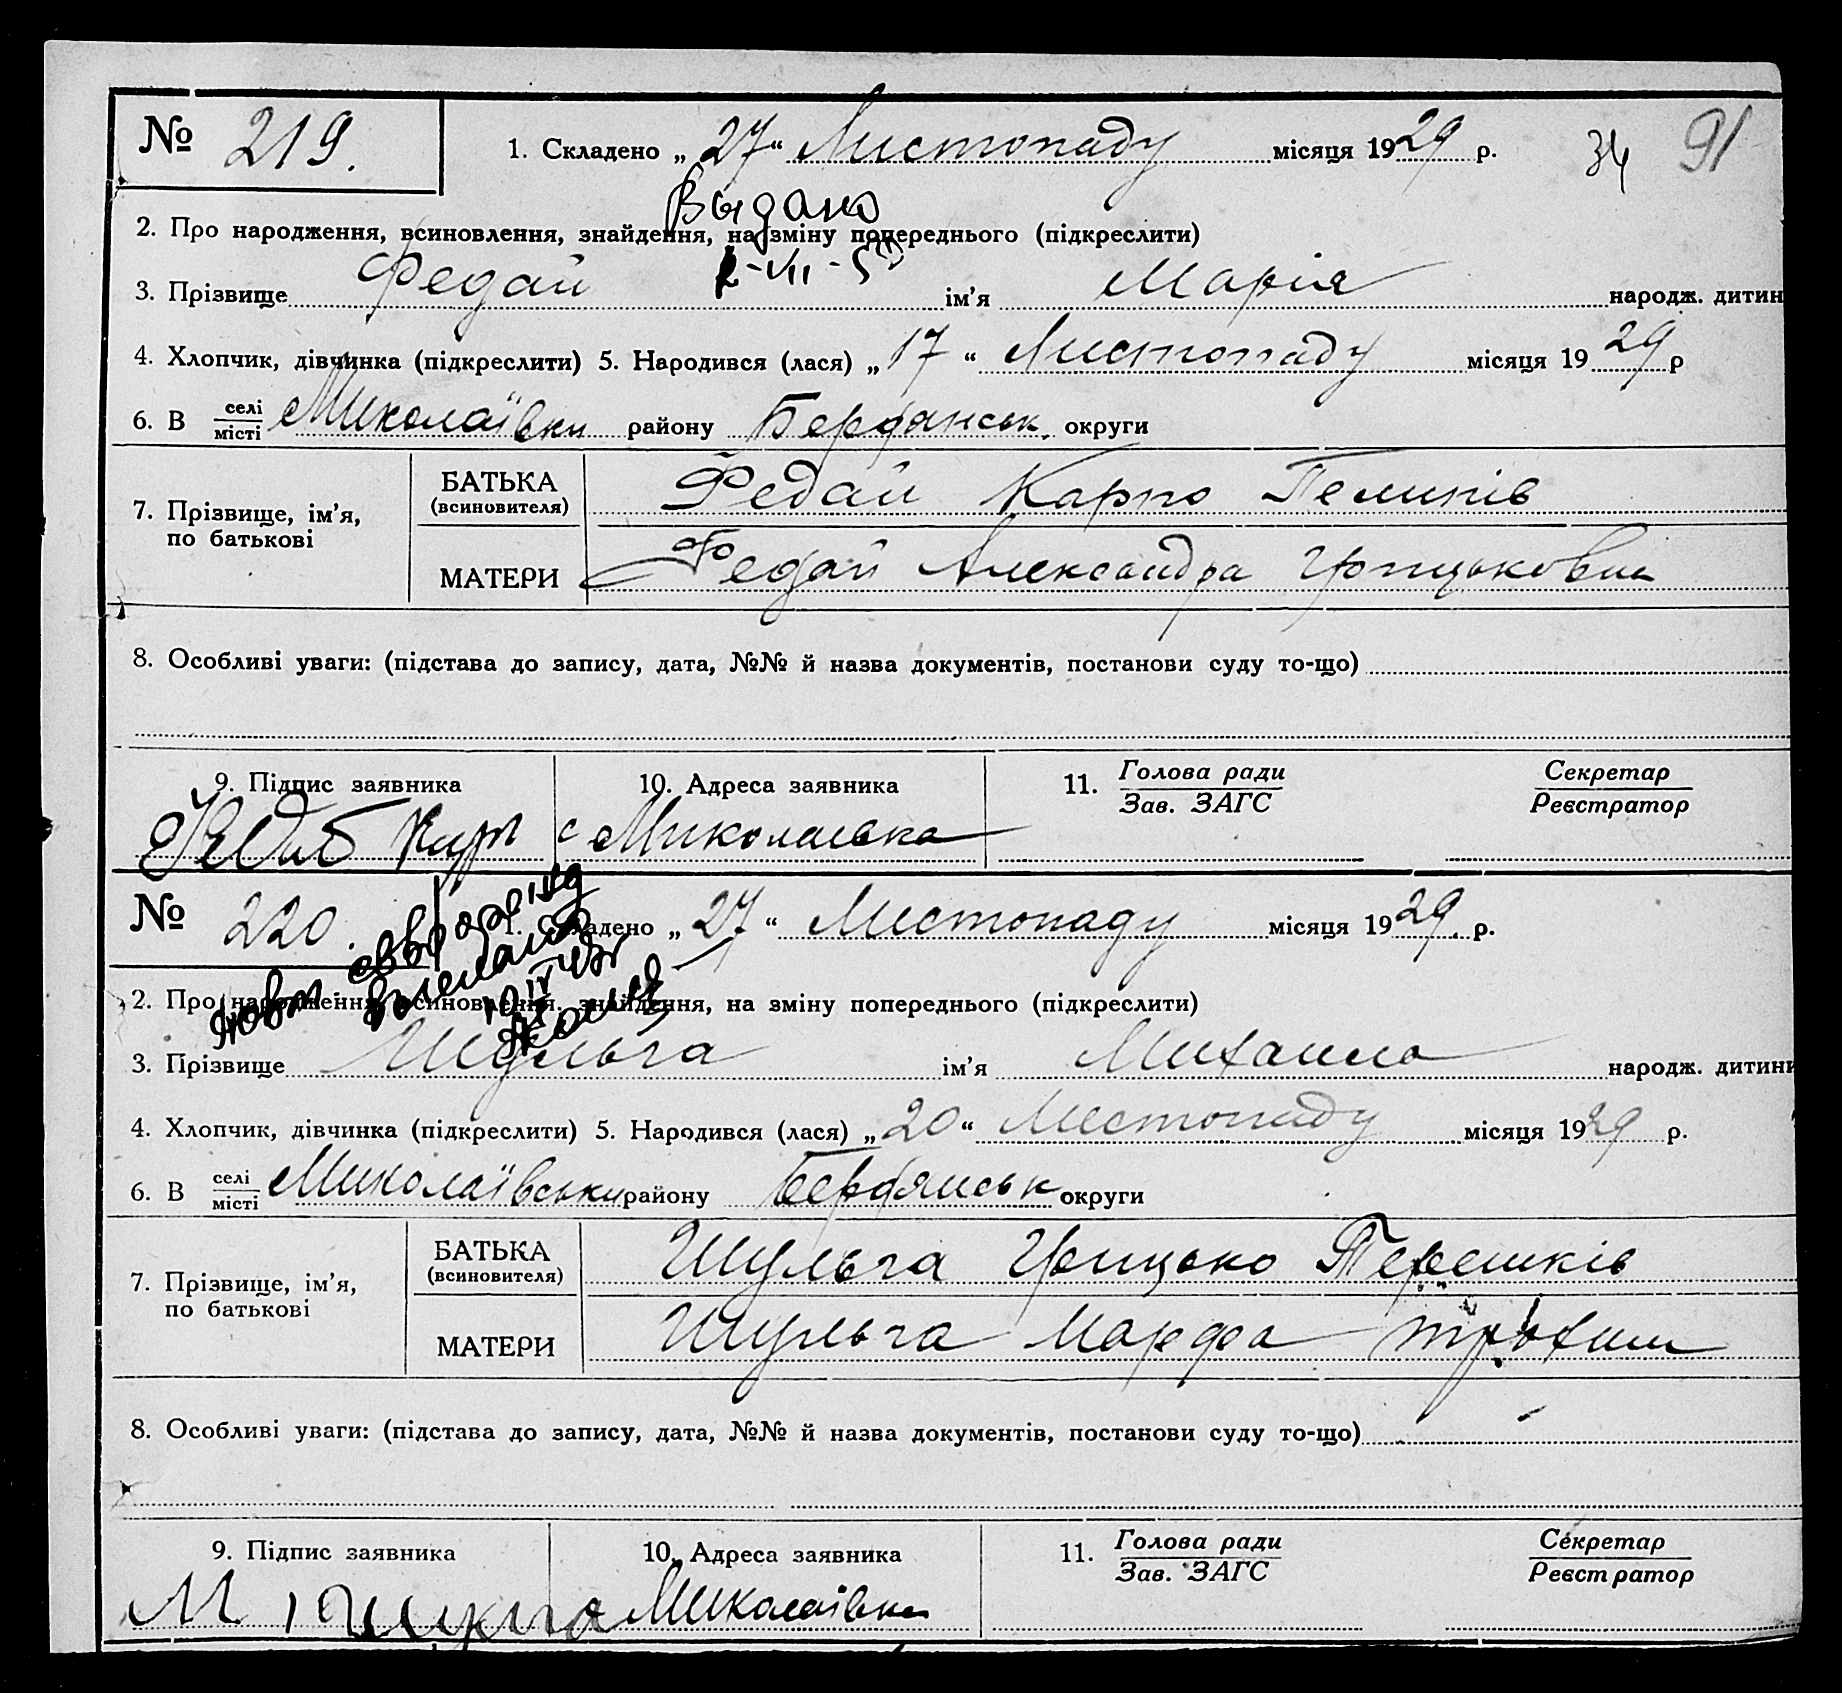 № 219. 1. Складено „27“ Листопаду місяця 1929 р. 34 91
Выдано
2. Про народження, всиновлення, знайдення, на зміну попереднього (підкреслити)
3. Прізвище Федай ім'я Марія народж. дитин
4. Хлопчик, дівчинка (підкреслити) 5. Народився (лася) „17“ Листопаду місяця 1929 р
6. В селі/місті Миколаївки району Бердянськ. округи
7. Прізвище, ім'я, по батькові
БАТЬКА (всиновителя) Федай Карпо
МАТЕРИ Федай Александра Грицьковна
8. Особливі уваги: (підстава до запису, дата, №№ й назва документів, постанови суду то-що)
9. Підпис заявника 10. Адреса заявника 11. Голова ради/Зав. ЗАГС Секретар/Реєстратор
с Миколаевка
№ 220. 1. Складено „27“ Листопаду місяця 1929. р.
2. Про народження, всиновлення, знайдення, на зміну попереднього (підкреслити)
3. Прізвище Шульга ім'я Михаило народж. дитини
4. Хлопчик, дівчинка (підкреслити) 5. Народився (лася) „20“ Листопаду місяця 1929 р.
6. В селі/місті Миколаївськи району Бердянськ округи
7. Прізвище, ім'я, по батькові
БАТЬКА (всиновителя) Шульга Грицько Терешків
МАТЕРИ Шульга Марфа
8. Особливі уваги: (підстава до запису, дата, №№ й назва документів, постанови суду то-що)
9. Підпис заявника 10. Адреса заявника 11. Голова ради/Зав. ЗАГС Секретар/Реєстратор
с Миколаївка